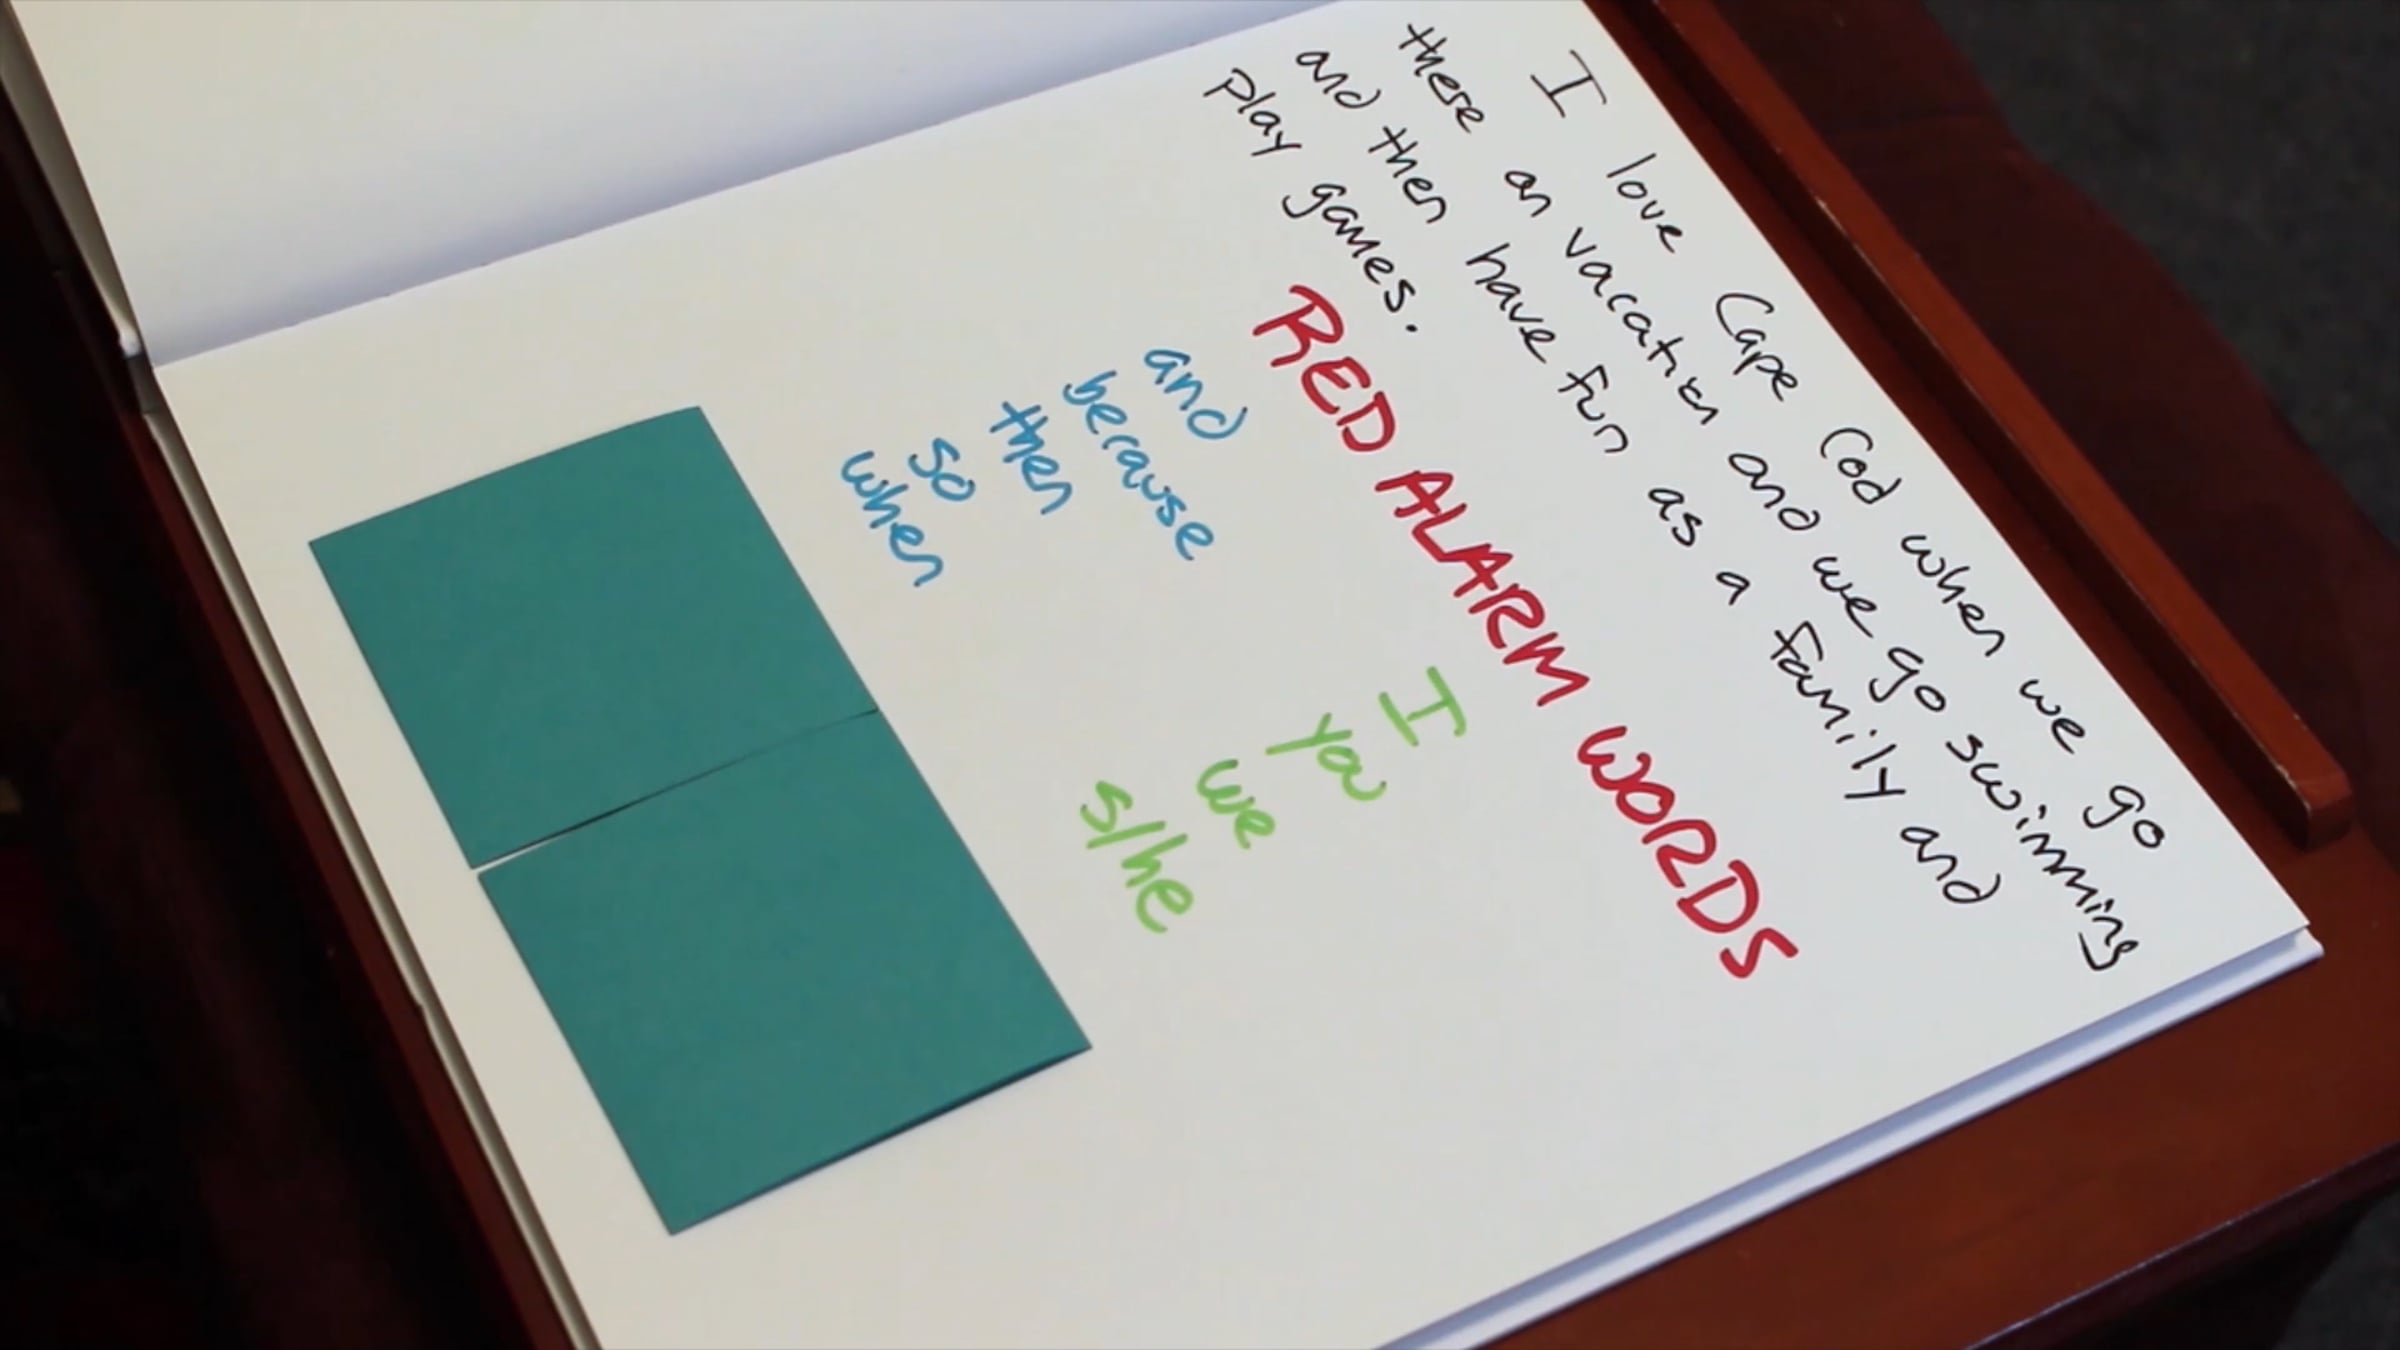 I love Cape Cod when we go
there on vacation and we go swimming
and then have fun as a family and
play games.
RED ALARM WORDS
and
because
then
so
when
I
you
we
s/he